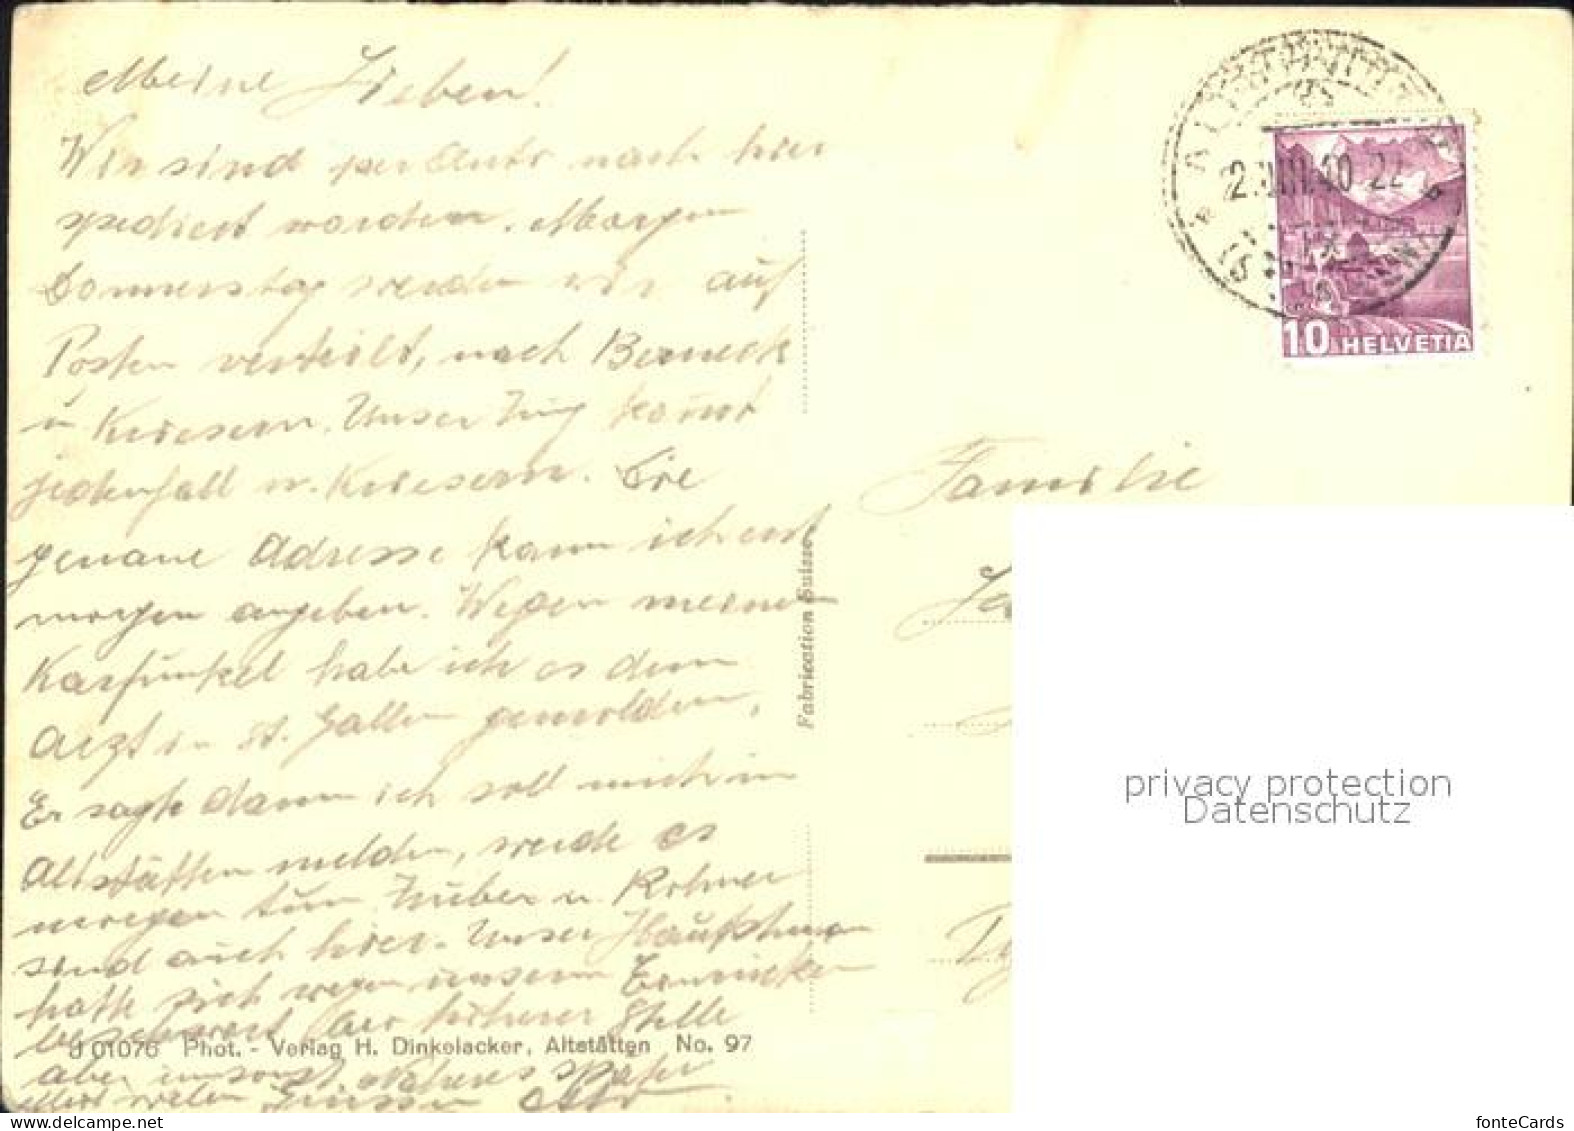 Meine Lieben!
Wir sind per Auto nach hier
spediert worden. Morgen
Donnerstag werden wir auf
Posten verteilt, nach Berneck
u Kriesern. Unser Zug kommt
jedenfall n. Kriesern. Die
genaue Adresse kann ich erst
morgen angeben. Wegen meinem
Karfunkel habe ich es dem
Arzt in St. Gallen gemolden,
Er sagte dann ich soll mich in
Altstätten melden, werde es
morgen tun. Huber u. Rohner
sind auch hier. Unser Hauptman
hatte sich wegen unserm Einrücken
beschwert bei höherer Stelle
aber umsonst. Näheres später
Mit vielen Grüssen
J 01076 Phot. - Verlag H. Dinkelacker, Altstätten No. 97
Fabrication Suisse
10 HELVETIA
Familie
privacy protection
Datenschutz
fonteCards